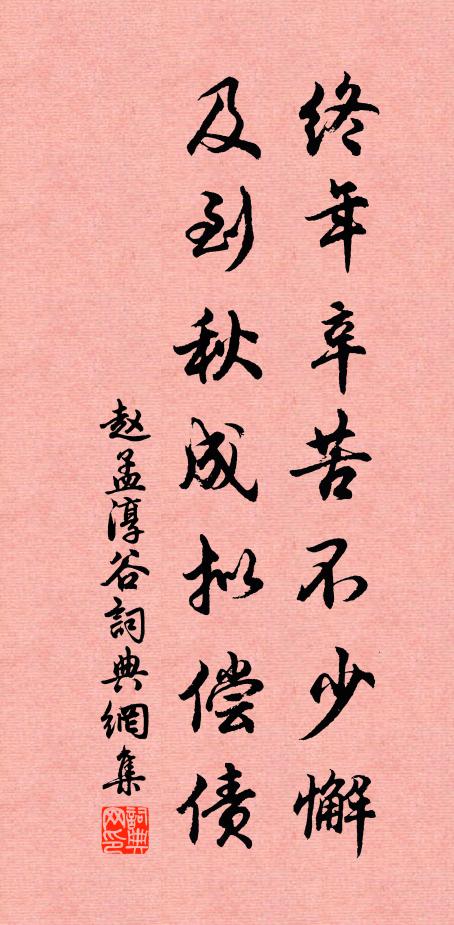 终年辛苦不少懈
及到秋成拟偿债
赵孟淳谷詞典網集
詞典网印